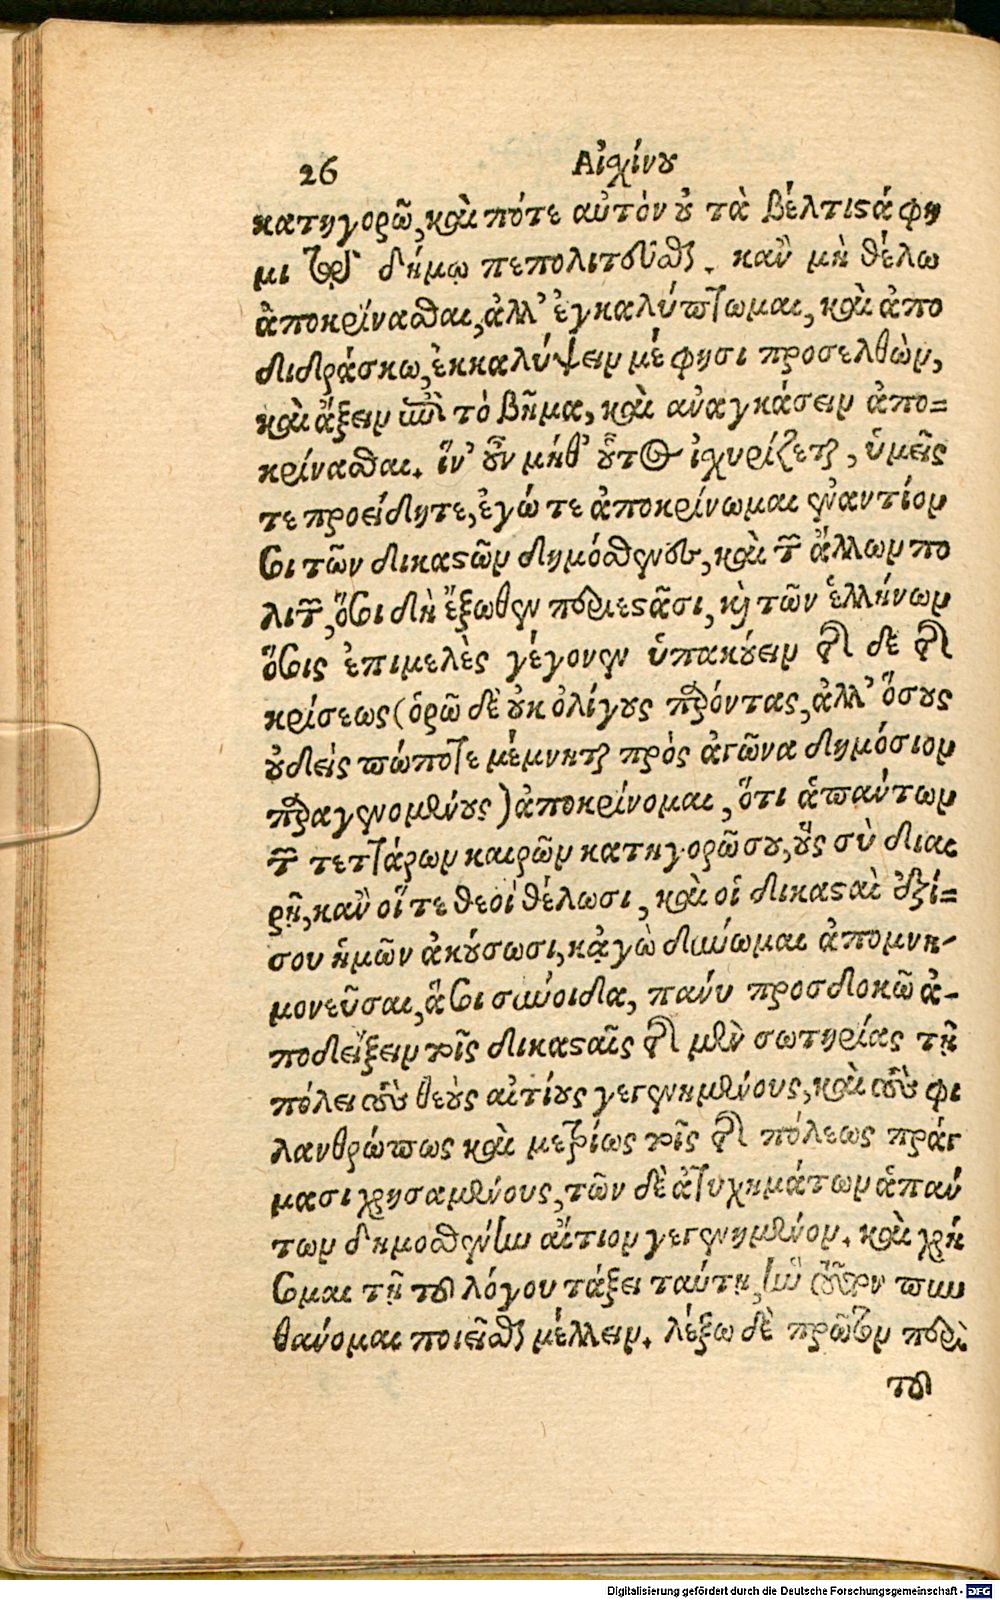 26 Αἰσχίνου
κατηγορῶ, καὶ πότε αὐτὸν οὐ τὰ βέλτιστά φη
μι τῷ δήμῳ πεπολιτεῦσθαι. κἂν μὴ θέλω
ἀποκρίνασθαι, ἀλλ' ἐγκαλύπτωμαι, καὶ ἀπο
διδράσκω, ἐκκαλύψειν μέ φησι προσελθὼν,
καὶ ἄξειν ἐπὶ τὸ βῆμα, καὶ ἀναγκάσειν ἀπο=
κρίνασθαι. ἵν' οὖν μήθ' οὗτος ἰσχυρίζεται, ὑμεῖς
τε προείδητε, ἐγώ τε ἀποκρίνωμαι ἐναντίον
σοι τῶν δικαστῶν δημόσθενες, καὶ τῶν ἄλλων πο
λιτῶν, ὅσοι δὴ ἔξωθεν περιεστᾶσι, καὶ τῶν ἑλλήνων
ὅσοις ἐπιμελὲς γέγονεν ὑπακούειν τῆς δὲ τῆς
κρίσεως (ὁρῶ δὲ οὐκ ὀλίγους παρόντας, ἀλλ' ὅσους
οὐδεὶς πώποτε μέμνηται πρὸς ἀγῶνα δημόσιον
παραγενομένους) ἀποκρίνομαι, ὅτι ἁπάντων
τῶν τεττάρων καιρῶν κατηγορῶ σου, οὓς σὺ διαι
ρῇ, κἂν οἵ τε θεοὶ θέλωσι, καὶ οἱ δικασταὶ ἐξί=
σου ἡμῶν ἀκούσωσι, κᾀγὼ δύνωμαι ἀπομνη-
μονεῦσαι, ἅ σοι σύνοιδα, πάνυ προσδοκῶ ἀ-
ποδείξειν τοῖς δικασταῖς τῆς μὲν σωτηρίας τῇ
πόλει τοὺς θεοὺς αἰτίους γεγενημένους, καὶ τοὺς φι
λανθρώπως καὶ μετρίως τοῖς τῆς πόλεως πράγ
μασι χρησαμένους, τῶν δὲ ἀτυχημάτων ἁπάν
των δημοσθένην αἴτιον γεγενημένον. καὶ χρή
σομαι τῇ τοῦ λόγου τάξει ταύτῃ, ἣν τοῦτον πυν
θάνομαι ποιεῖσθαι μέλλειν. λέξω δὲ πρῶτον περὶ
τοῦ
Digitalisierung gefördert durch die Deutsche Forschungsgemeinschaft - DFG